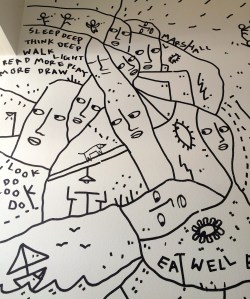 SLEEP DEEP
THINK DEEP
WALK LIGHT
READ MORE PLAY
MORE DRAW
MARSHALL
LOOK
DO
LOOK
DO
EAT WELL